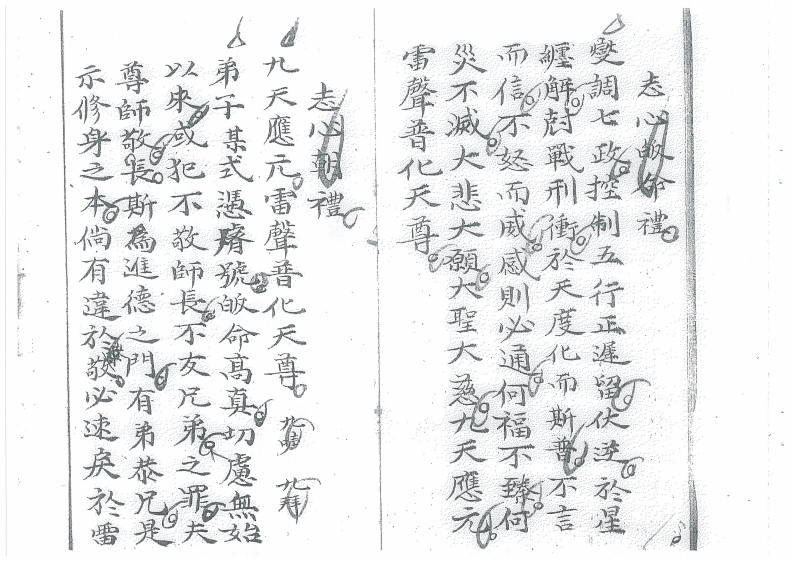 志心皈命禮
變調七政控制五行正遲留伏逆於星
纏解尅戰刑衝於天度化而斯普不言
而信不怒而威感則必通何福不臻何
災不滅大悲大願大聖大慈九天應元
雷聲普化天尊
志心朝禮
九天應元雷聲普化天尊 九 九拜
弟子某式憑寳號皈命高真切慮無始
以來或犯不敬師長不友兄弟之罪夫
尊師敬長斯為進德之門有弟恭兄是
示修身之本倘有違於敬必速戾於雷